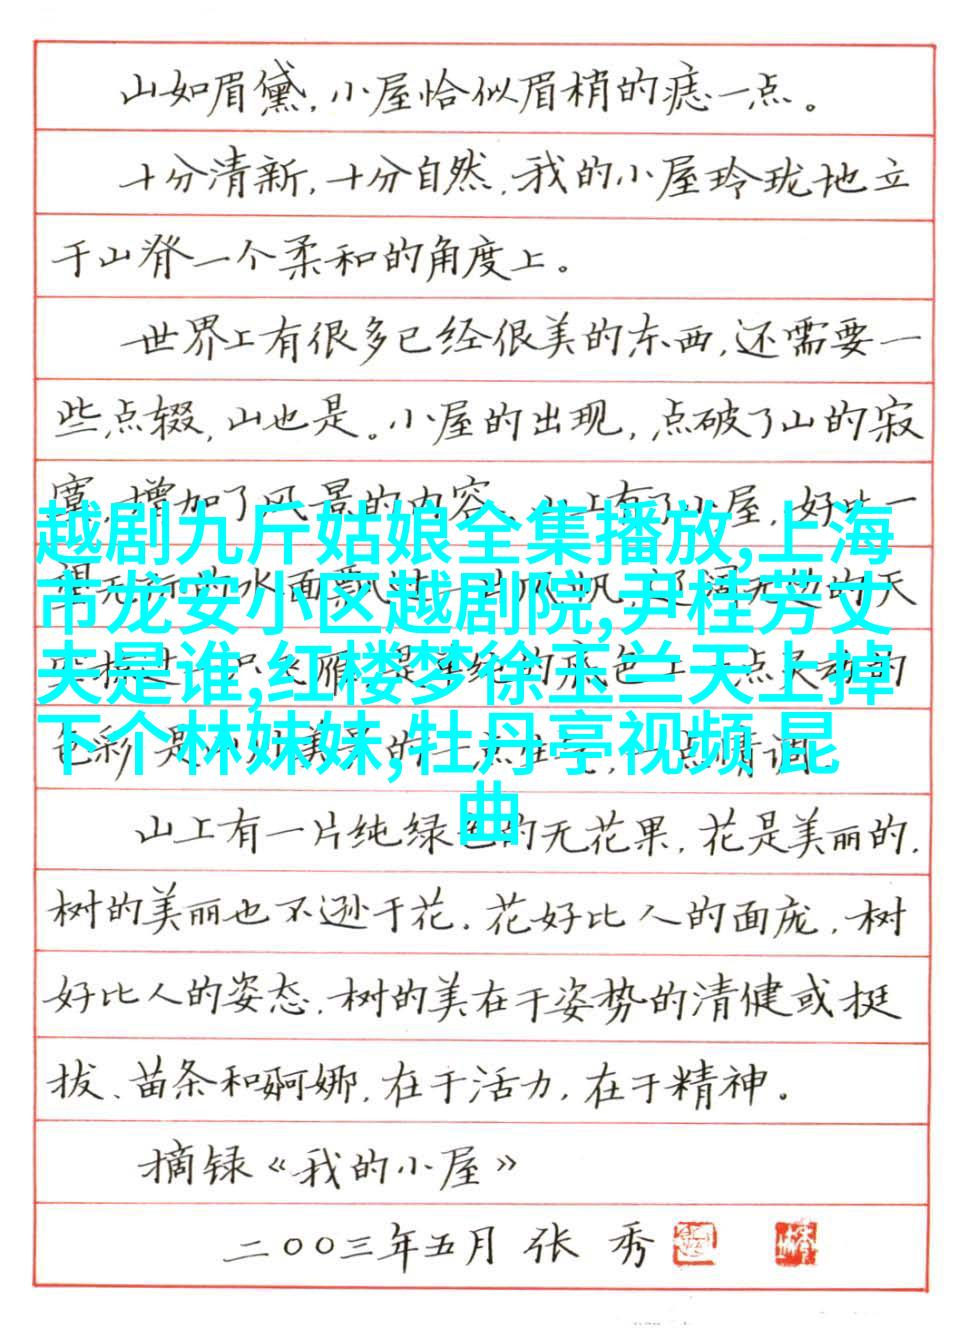 山如眉黛，小屋恰似眉梢的痣一点。
十分清新，十分自然，我的小屋玲珑地立
于山脊一个柔和的角度上。
世界上有很多已经很美的东西，还需要一
些点缀，山也是。小屋的出现，点破了山的寂
寞，增加了风景的内容。山上有了小屋，好比一
越剧九斤姑娘全集播放,上海
望无际的水面飘过一片风帆，辽阔无边的天
市龙安小区越剧院,尹桂芳丈
空掠过一只飞雁，是单纯的底色上一点灵动的
夫是谁,红楼梦徐玉兰天上掉
色彩，是山川美景的一点生气，一点情调。
下个林妹妹,牡丹亭视频 昆
曲
山上有一片纯绿色的无花果，花是美丽的，
树的美丽也不逊于花。花好比人的面庞，树
好比人的姿态。树的美在于姿势的清健或挺
拔、苗条和婀娜，在于活力，在于精神。
摘录《我的小屋》
二〇〇三年五月 张 秀